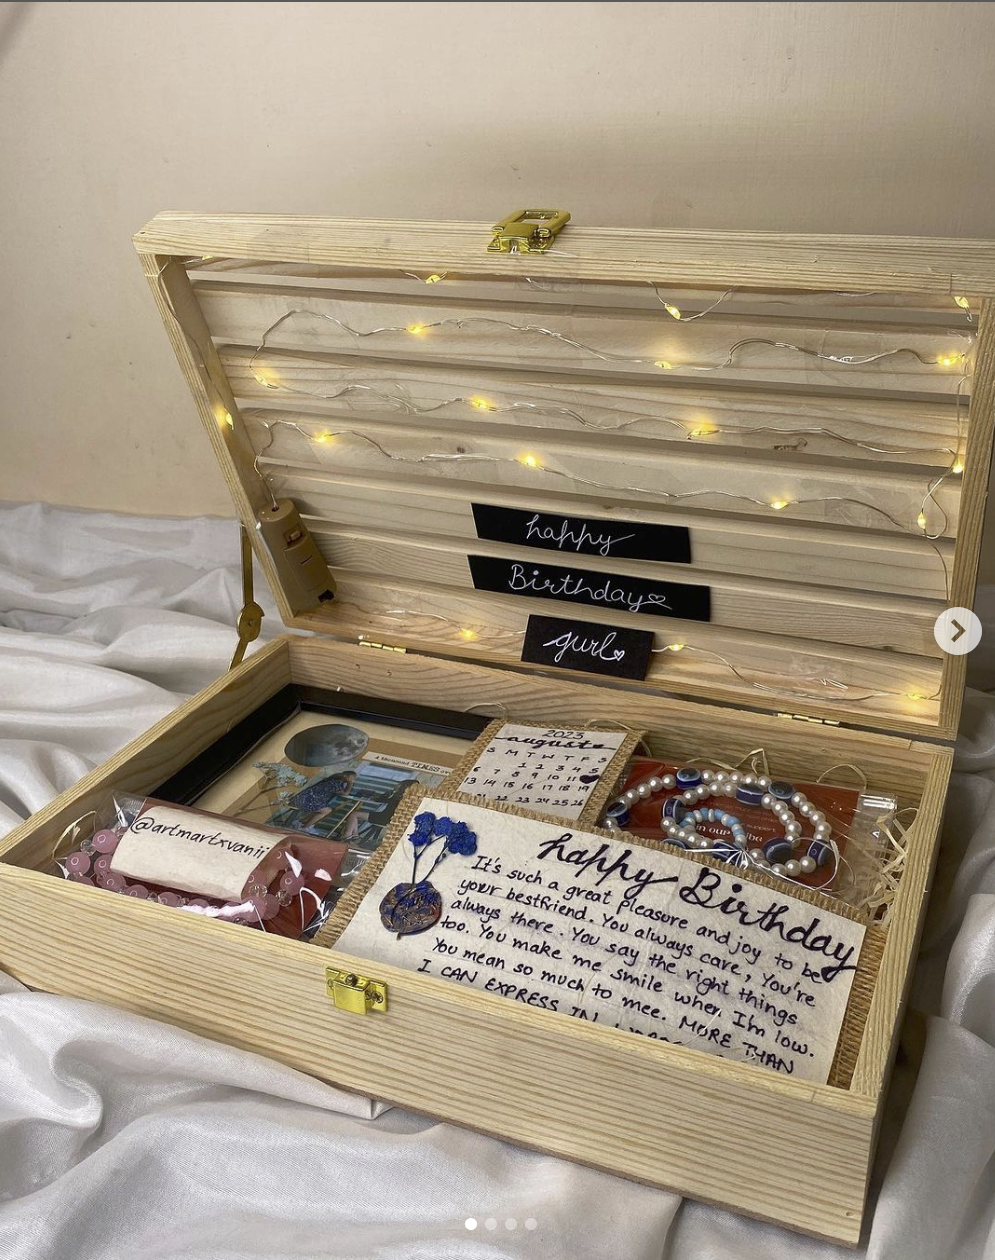 happy
Birthday
gurl
2023
auguste
S M T W T F S
1 2 3 4 5
6 7 8 9 10 11
13 14 15 16 17 18 19
22 23 24 25 26
a thousand TIMES
@artmartxvanii
in our
happy Birthday
It's such a great pleasure and joy to be
your bestfriend. You always care, You're
always there. You say the right things
too. You make me smile when I'm low.
You mean so much to mee. MORE THAN
I CAN EXPRESS IN